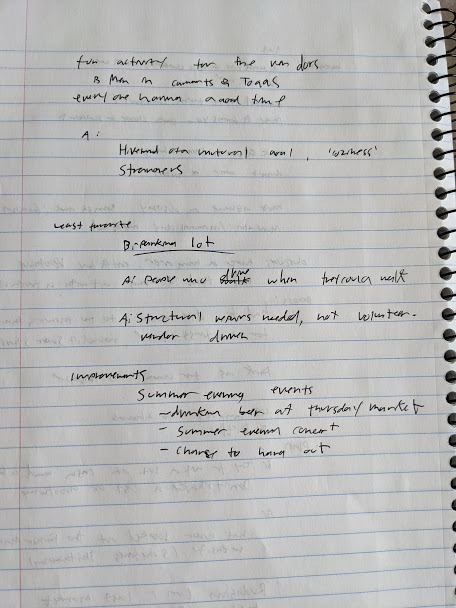 fun activity for the vendors
B Men in comments & Togas
everyone havina a good time
A:
Hivemind of a mutural goal, 'coziness'
Strangers
Least favorite
B: parking lot
A: people who drive when they could walk
A: Structural repairs needed, not volunteer-
vendor driven
Improvements
Summer evening events
- drinking beer at thursday market
- Summer evening concert
- Change to hang out